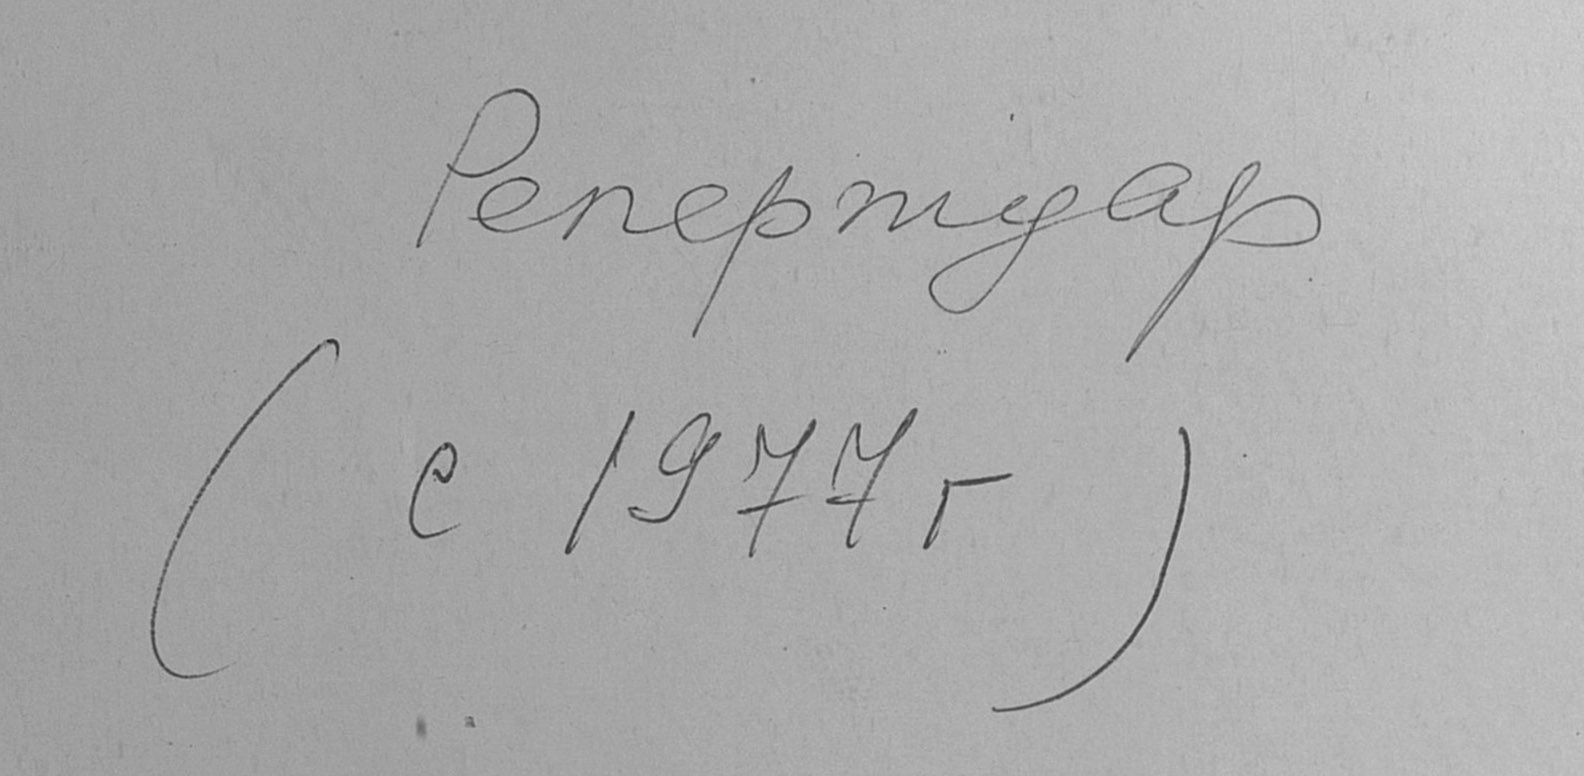 Репертуар
(с 1977г)